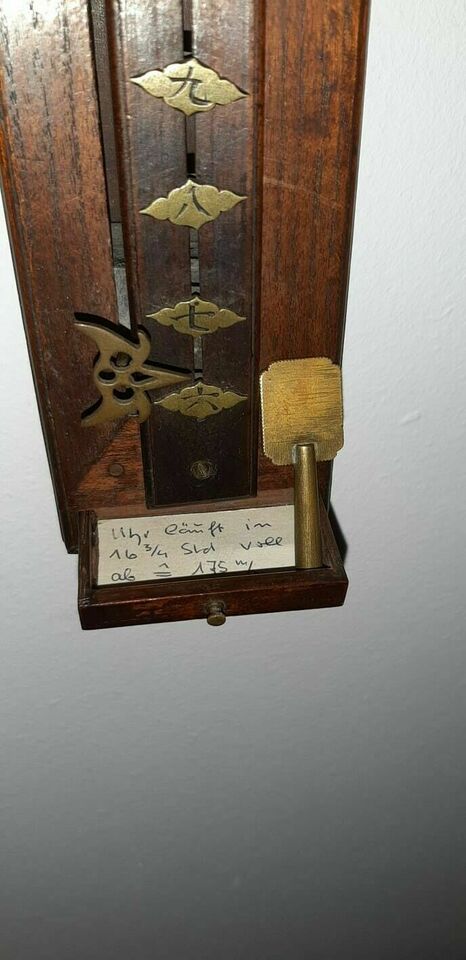 九
八
七
六
Uhr läuft in
16 3/4 Std voll
ab ≙ 175 m/